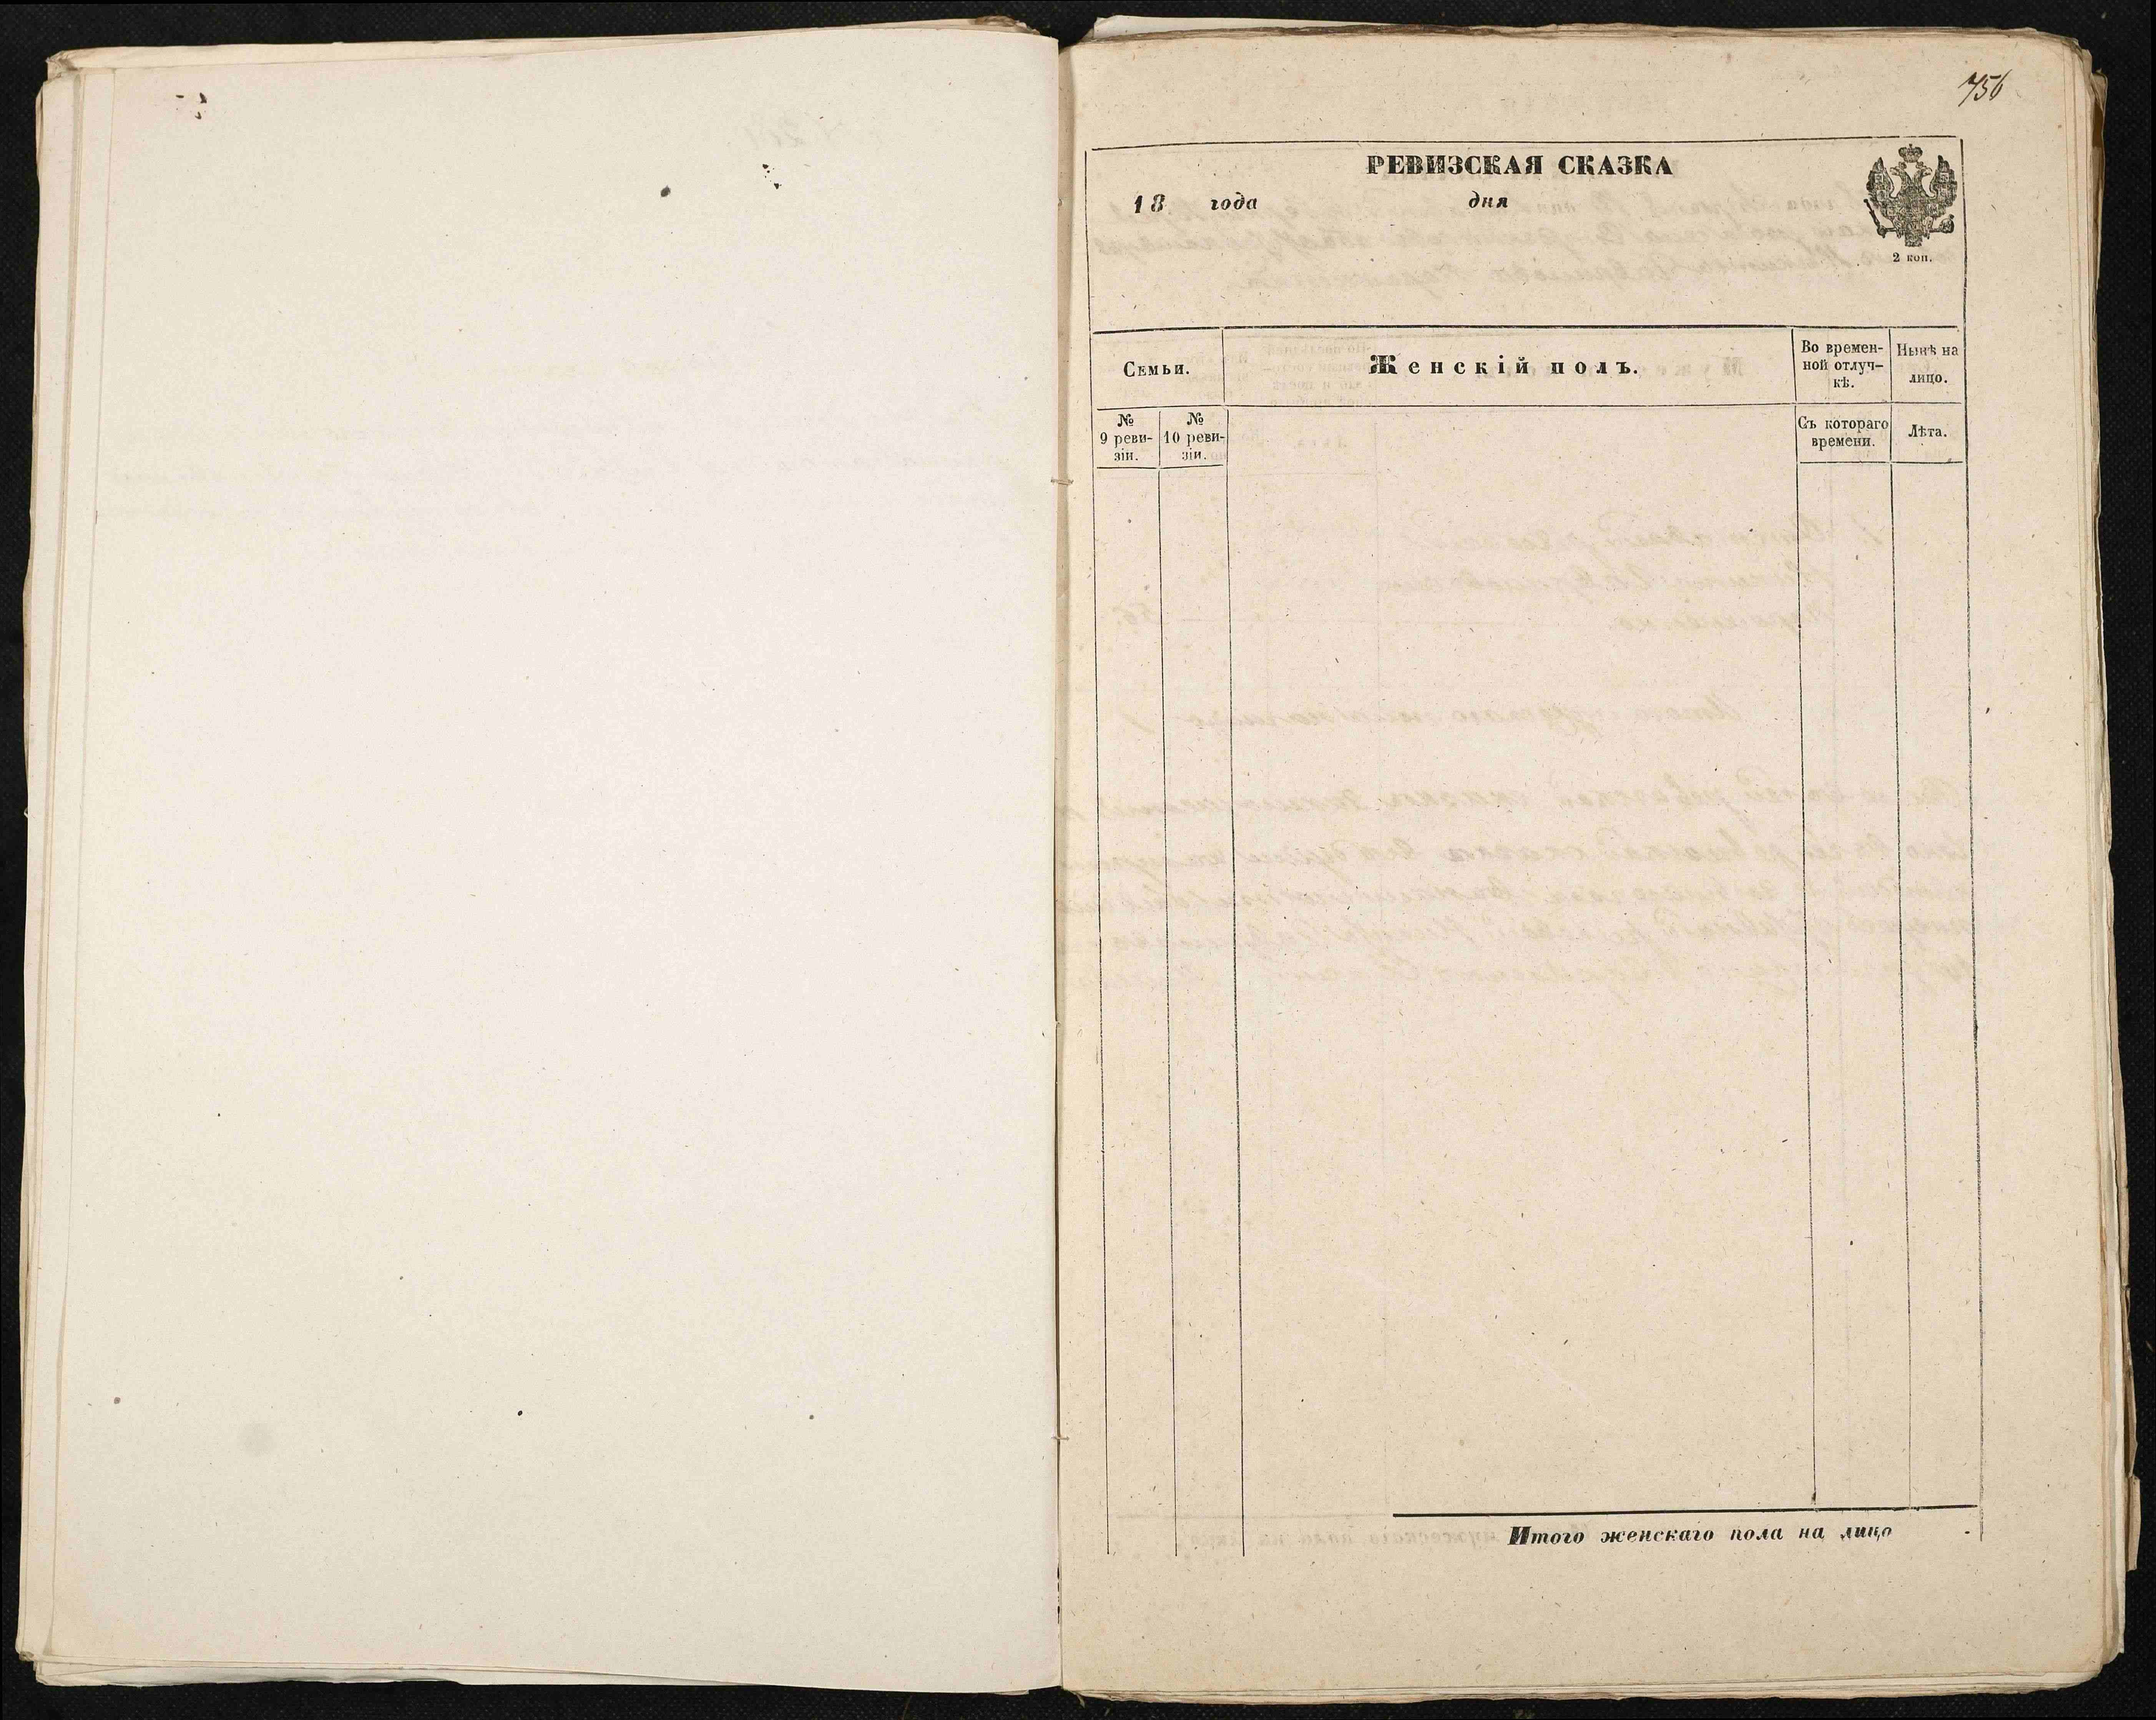 756
РЕВИЗСКАЯ СКАЗКА
18 года дня
2 коп.
Семьи.
Женскій полъ.
Во времен-
ной отлуч-
кѣ.
Нынѣ на
лицо.
№
9 реви-
зіи.
№
10 реви-
зіи.
Съ котораго
времени.
Лѣта.
Итого женскаго пола на лицо